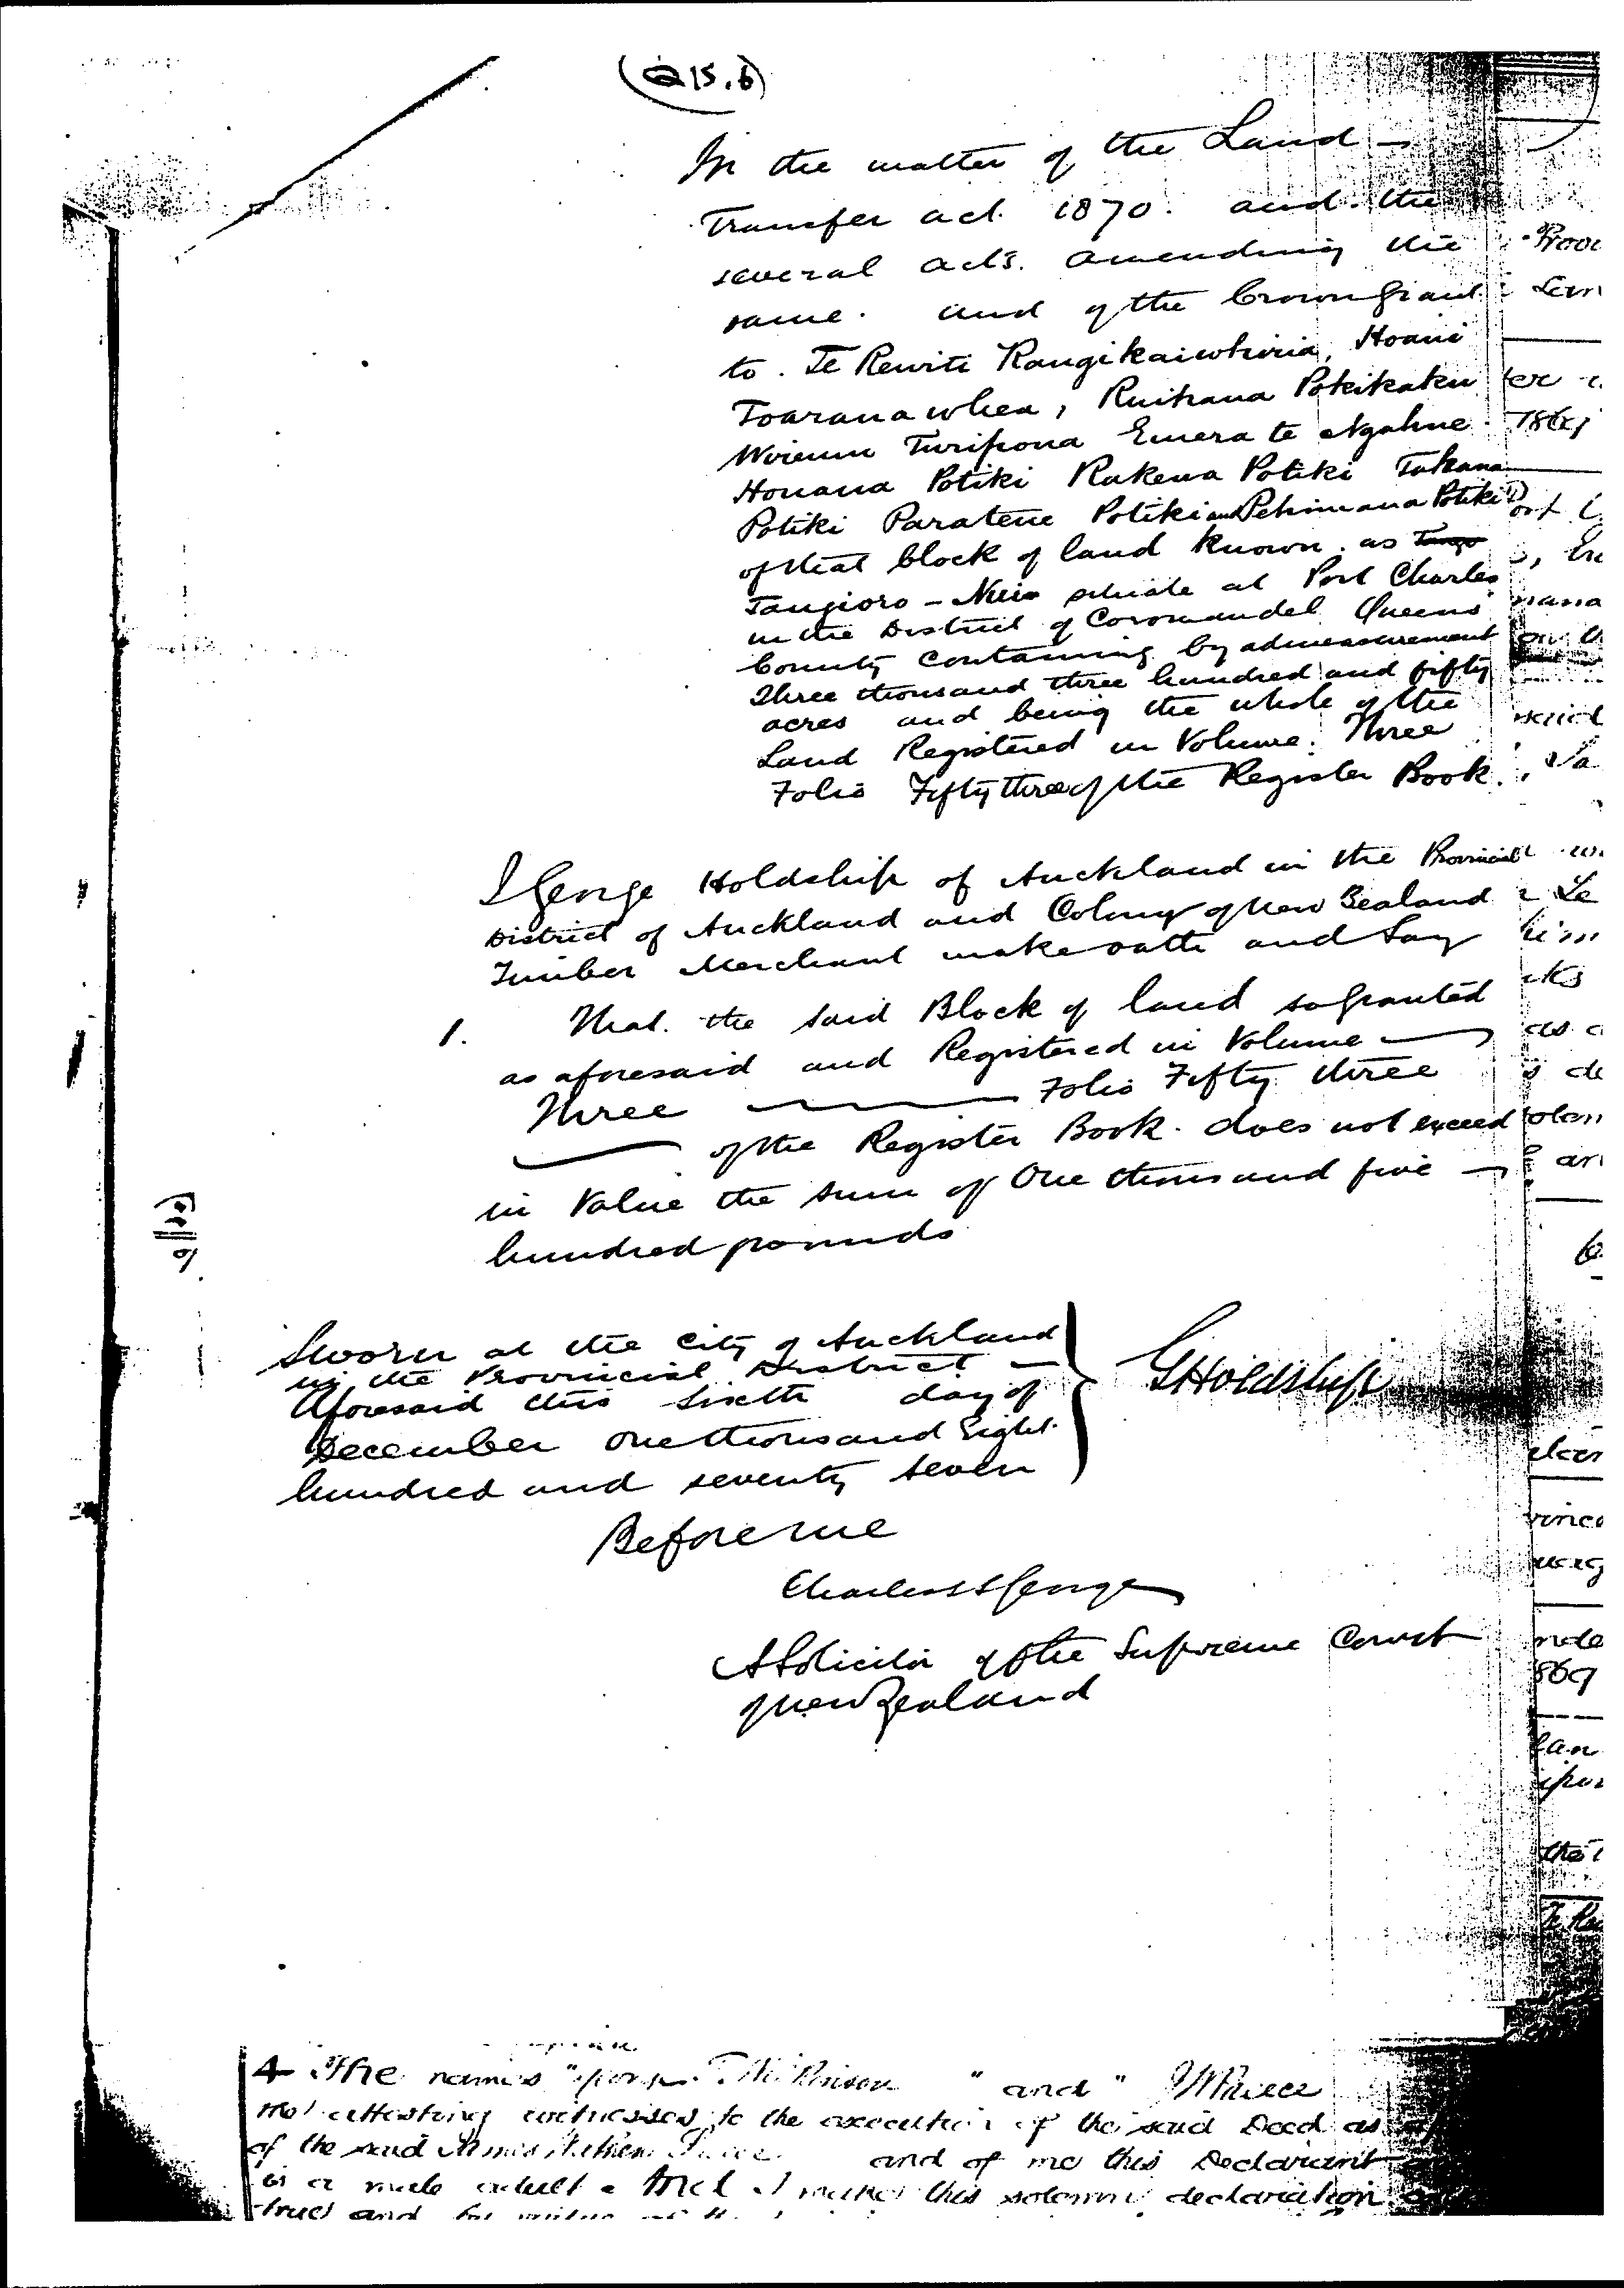 (Q15.b)
In the matter of the Land
Transfer act 1870. and the
several acts. amending the
same. and of the Crown Grant
to. Te Rewiti Rangikaiwhiria, Hoani
Toaranawhea, Ruihana Potikitaku
Wiremu Turipona Emera te Ngahue
Honana Potiki Rakena Potiki Takana
Potiki Paratene Potiki and Pehimana Potiki
of that block of land known as
Tangioro - Nui situate at Port Charles
in the District of Coromandel Queens
County containing by admeasurement
Three thousand three hundred and fifty
acres and being the whole of the
Land Registered in Volume Three
Folio Fifty three of the Register Book.
I George Holdship of Auckland in the Provincial
District of Auckland and Colony of New Zealand
Timber Merchant make oath and Say
1. That the said Block of land so granted
as aforesaid and Registered in Volume
Three Folio Fifty three
of the Register Book. does not exceed
in Value the sum of One thousand five
hundred pounds
Sworn at the City of Auckland
in the Provincial District
Aforesaid this Sixth day of
December One thousand Eight
hundred and seventy seven
GHoldship
Before me
A Solicitor of the Supreme Court
of New Zealand
4 The names " " and "
the attesting witnesses to the execution of the said Deed as
of the said and of me this Declarant
is a male adult And I make this solemn declaration
true and